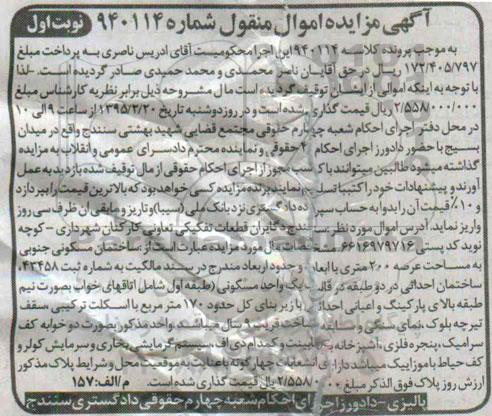 آگهی مزایده اموال منقول شماره ۹۴۰۱۱۴
نوبت اول
به موجب پرونده کلاسه ۹۴۰۱۱۴ این اجرا محکومیت آقای ادریس ناصری به پرداخت مبلغ
۱۷۲/۴۰۵/۷۹۷ ریال در حق آقایان ناصر محمدی و محمد حمیدی صادر گردیده است. -لذا
با توجه به اینکه اموالی از ایشان توقیف گردیده است مال مشروحه ذیل برابر نظریه کارشناس مبلغ
۲/۵۵۸/۰۰۰/۰۰۰ ریال قیمت گذاری شده است و در روز دوشنبه تاریخ ۱۳۹۵/۲/۲۰ از ساعت ۹ الی ۱۰
در محل دفتر اجرای احکام شعبه چهارم حقوقی مجتمع قضایی شهید بهشتی سنندج واقع در میدان
بسیج با حضور دادورز اجرای احکام حقوقی و نماینده محترم دادسرای عمومی و انقلاب به مزایده
گذاشته میشود طالبین میتوانند با کسب مجوز از اجرای احکام حقوقی از مال توقیف شده بازدید به عمل
آورند و پیشنهادات خود را کتبا تسلیم نمایند برنده مزایده کسی خواهد بود که بالاترین قیمت را بپردازد
و ۱۰٪ قیمت آن را بدوا به حساب سپرده دادگستری نزد بانک ملی (سیبا) و تاریز و مابقی آن ظرف سی روز
واریز نماید. آدرس اموال مورد نظر: سنندج قطعات تفکیکی تعاونی کارکنان شهرداری - کوچه
نوید کد پستی ۶۶۱۶۹۷۹۷۱۶ مشخصات مال مورد مزایده عبارت است از: ساختمان مسکونی جنوبی
به مساحت عرصه ۲۰۰ متری با ابعاد و حدود اربعه مندرج در سند مالکیت به شماره ثبت ۴۳۴۵۸،
ساختمان احداثی در دو طبقه در قالب یک واحد مسکونی (طبقه اول شامل اتاقهای خواب بصورت نیم
طبقه بالای پارکینگ و اعیانی احداثی با زیربنای کل حدود ۱۷۰ متر مربع با اسکلت ترکیبی، سقف
تیرچه بلوک، نمای سنگی و سابقه ساخت قریب سال میباشد. واحد مذکور بصورت دو خوابه کف
سرامیک، پنجره فلزی، آشپزخانه کابینت و کمد ام دی اف، سیستم گرمایشی بخاری و سرمایش کولر و
کف حیاط با موزاییک میباشد دارای انشعابات چهارگونه با عنایت به موقعیت محل و شرایط پلاک مذکور
ارزش روز پلاک فوق الذکر مبلغ ۲/۵۵۸/۰۰۰/۰۰۰ ریال قیمت گذاری شده است. م/الف: ۱۵۷
بالبزی - دادورز اجرای احکام شعبه چهارم حقوقی دادگستری سنندج